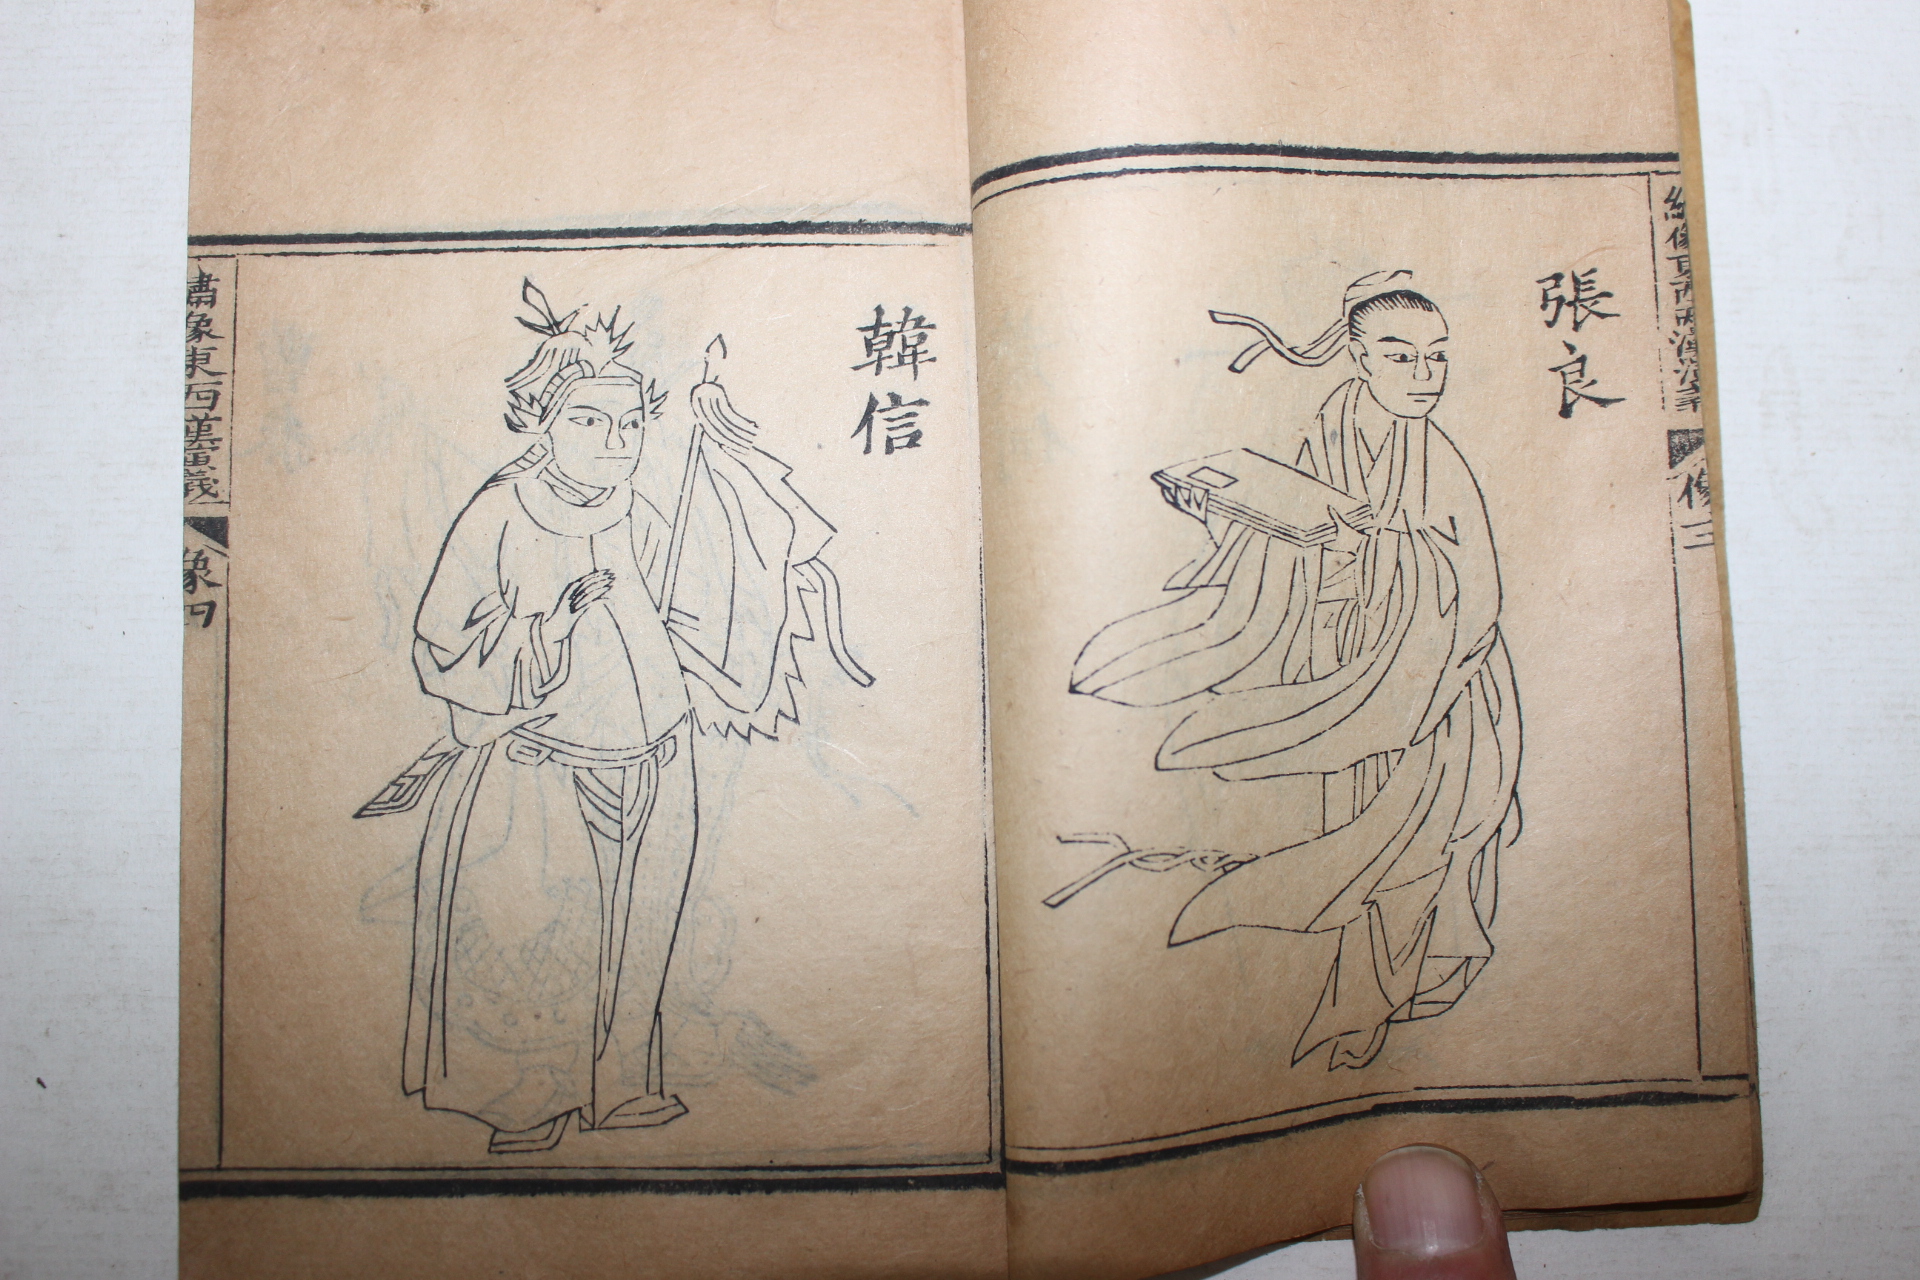 張良
繡像東西兩漢演義
像三
韓信
繡像東西漢演義
像四